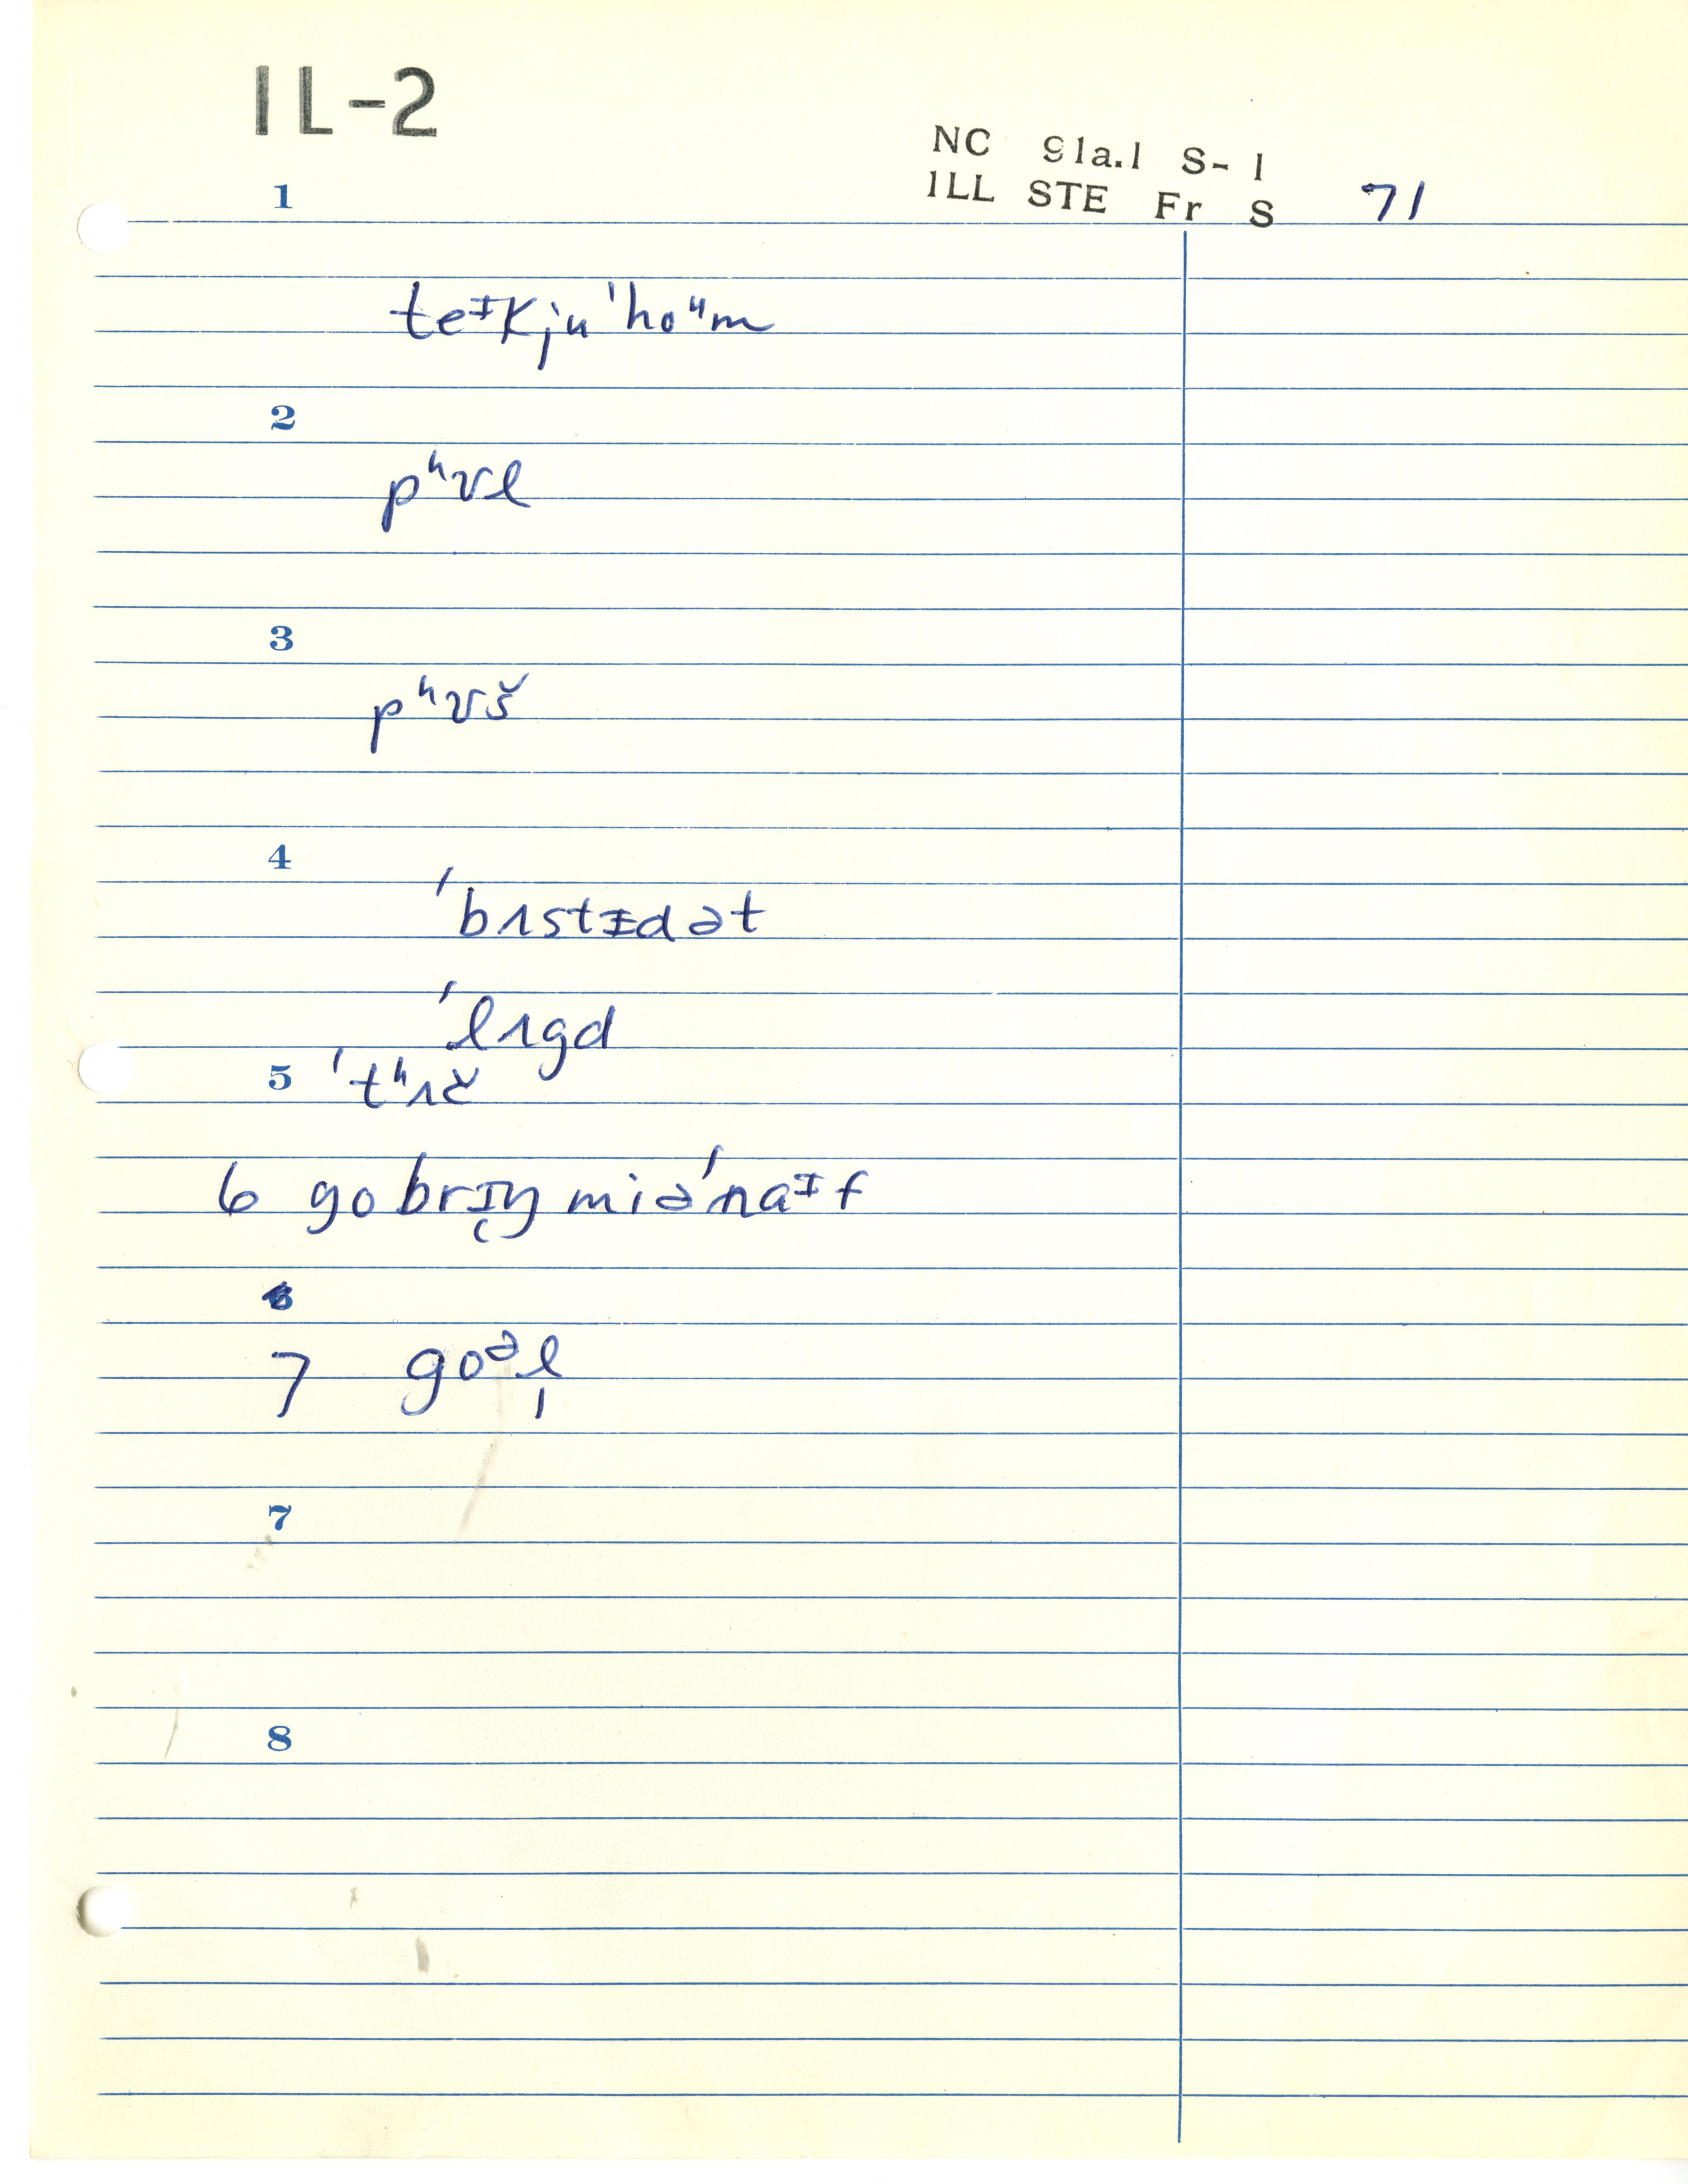 IL-2
NC 91a.1 S-1
ILL STE Fr S 71
1
teᶦkju'hoᵘm
2
pʰʊl
3
pʰʊš
4
'bʌstɪdət
'lʌgd
5 'tʰʌč
6 go brɪ̨ŋ miə'naᶦf
6
7 goᵊl̩
7
8